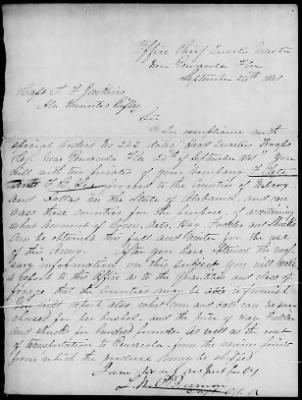 Office Chief Quarter Master
Near Pensacola Fla
September 25th 1861
Capt T. F. Jenkins
Ala Mounted Rifles
Sir
In compliance with
special orders No 262 dated Head Quarters Troops
C.S. Near Pensacola Fla 25th of September 1861 You
will with two privates of your Company
proceed to the Counties of Wilcox
and Dallas in the State of Alabama, and can-
vass those counties for the purpose of ascertaining
what amount of Corn, Oats, Hay, Fodder and Shucks
Can be obtained this fall and Winter for the use
of this Army. After you have obtained the neces-
sary information on this subject you will make
a report to this Office as to the quantities and class of
forage that the counties may be able to furnish
also what Corn and oats can be pur-
chased for per bushel, and the price of Hay Fodder
and shucks per hundred pounds as well as the cost
of transportation to Pensacola from the various points
from which the produce may be shipped
I am Sir very respectfully